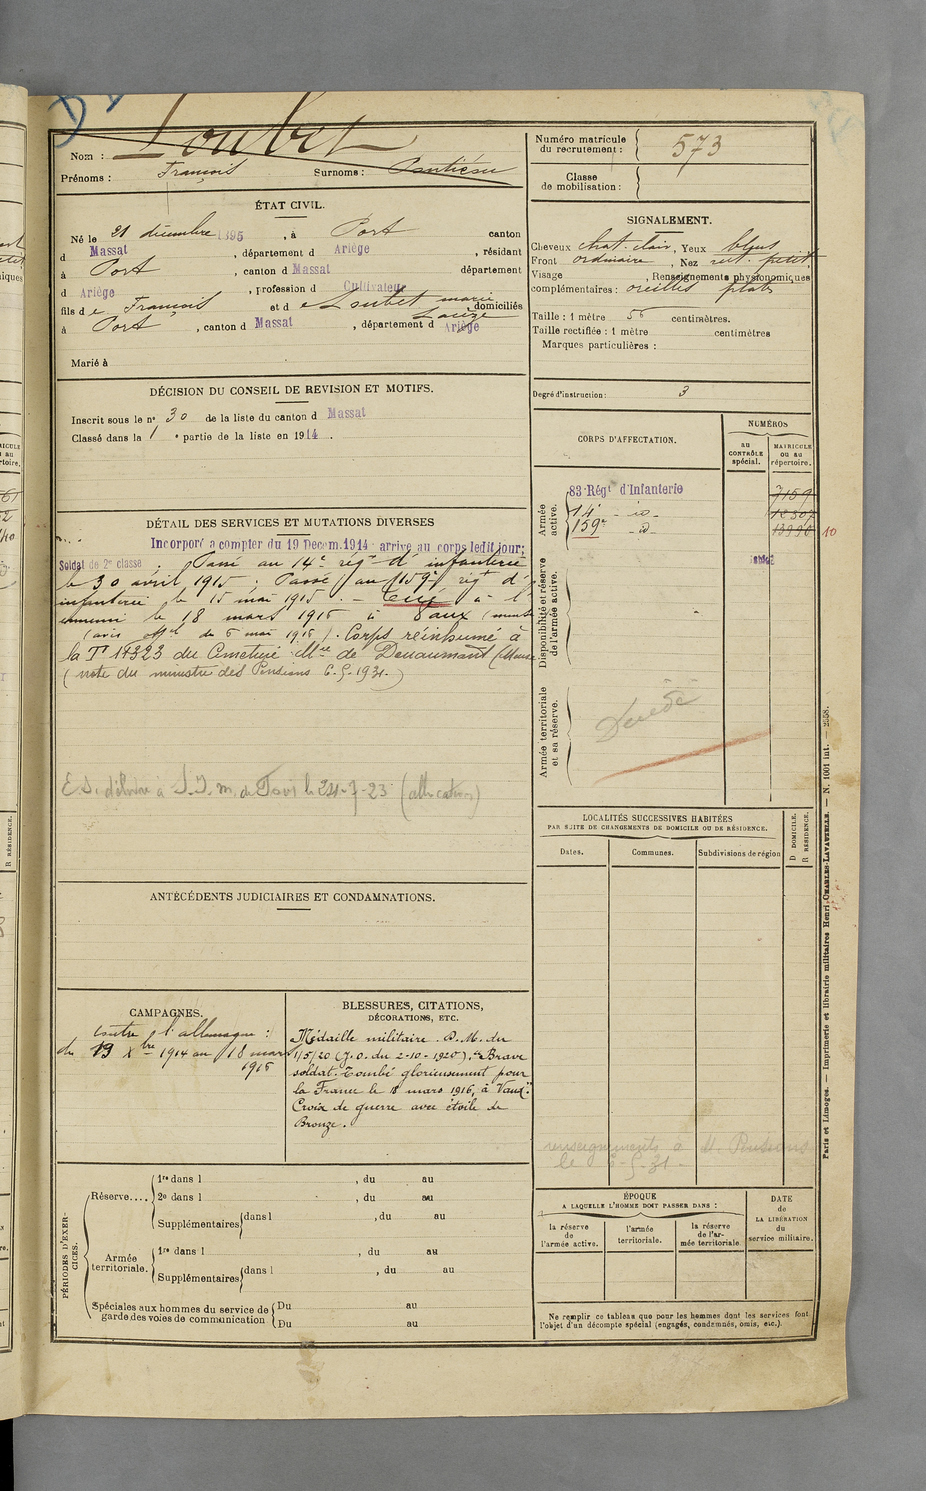 Loubet
Nom :
Prénoms : François Surnoms :
Numéro matricule
du recrutement : 573
Classe
de mobilisation :
ÉTAT CIVIL.
Né le 21 décembre 1895, à Port canton
d Massat, département d Ariège, résidant
à Port, canton d Massat département
d Ariège, profession d Cultivateur
fils de François et de Loubet marie Louise, domiciliés
à Port, canton d Massat, département d Ariège
Marié à
SIGNALEMENT.
Cheveux chat. clair, Yeux bleus
Front ordinaire, Nez rect. petit
Visage , Renseignements physionomiques
complémentaires : oreilles plates
Taille : 1 mètre 56 centimètres.
Taille rectifiée : 1 mètre centimètres
Marques particulières :
Degré d'instruction : 3
DÉCISION DU CONSEIL DE REVISION ET MOTIFS.
Inscrit sous le nº 30 de la liste du canton d Massat
Classé dans la 1e partie de la liste en 1914.
CORPS D'AFFECTATION.
NUMÉROS
au
CONTRÔLE
spécial.
MATRICULE
ou au
répertoire.
Armée
active.
83 Régt d'Infanterie 7159
14e - io -
159e - io - 10
Disponibilité et réserve
de l'armée active.
Armée territoriale
et sa réserve.
Décédé
DÉTAIL DES SERVICES ET MUTATIONS DIVERSES
Incorporé a compter du 19 Decem. 1914 arrive au corps ledit jour;
Soldat de 2e classe. Passé au 14e régt d'infanterie
le 30 avril 1915. Passé au 159e régt d'
infanterie le 15 mai 1915. - Tué à l'
ennemi le 18 mars 1916 à Vaux (meuse
(avis offel du 6 mai 1916). Corps réinhumé à
la Te 14323 du Cimetière Mre de Douaumont (Meuse
(note du ministre des Pensions 6.5.1931.)
E.S. délivré à S.I.m. de le 24-7-23 (allocation)
LOCALITÉS SUCCESSIVES HABITÉES
PAR SUITE DE CHANGEMENTS DE DOMICILE OU DE RÉSIDENCE.
Dates. Communes. Subdivisions de région
D DOMICILE.
R RÉSIDENCE.
ANTÉCÉDENTS JUDICIAIRES ET CONDAMNATIONS.
CAMPAGNES.
Contre l'allemagne :
du 19 Xbre 1914 au 18 mars
1916
BLESSURES, CITATIONS,
DÉCORATIONS, ETC.
Médaille militaire. D.M. du
1/5/20 (J.O. du 2-10-1920): "Brave
soldat. Tombé glorieusement pour
la France le 18 mars 1916, à Vaux".
Croix de guerre avec étoile de
Bronze.
renseignements à M. Pensions
le 6-5-31-
PÉRIODES D'EXER-
CICES.
Réserve....
1re dans l , du au
2e dans l , du au
Supplémentaires dans l , du au
Armée
territoriale.
1re dans l , du au
Supplémentaires dans l , du au
Spéciales aux hommes du service de
garde des voies de communication
Du au
Du au
ÉPOQUE
A LAQUELLE L'HOMME DOIT PASSER DANS :
la réserve
de
l'armée active.
l'armée
territoriale.
la réserve
de l'ar-
mée territoriale.
DATE
de
LA LIBÉRATION
du
service militaire.
Ne remplir ce tableau que pour les hommes dont les services font
l'objet d'un décompte spécial (engagés, condamnés, omis, etc.).
Paris et Limoges. — Imprimerie et librairie militaires Henri CHARLES-LAVAUZELLE. — N. 1001 int. — 2558.
R RÉSIDENCE.